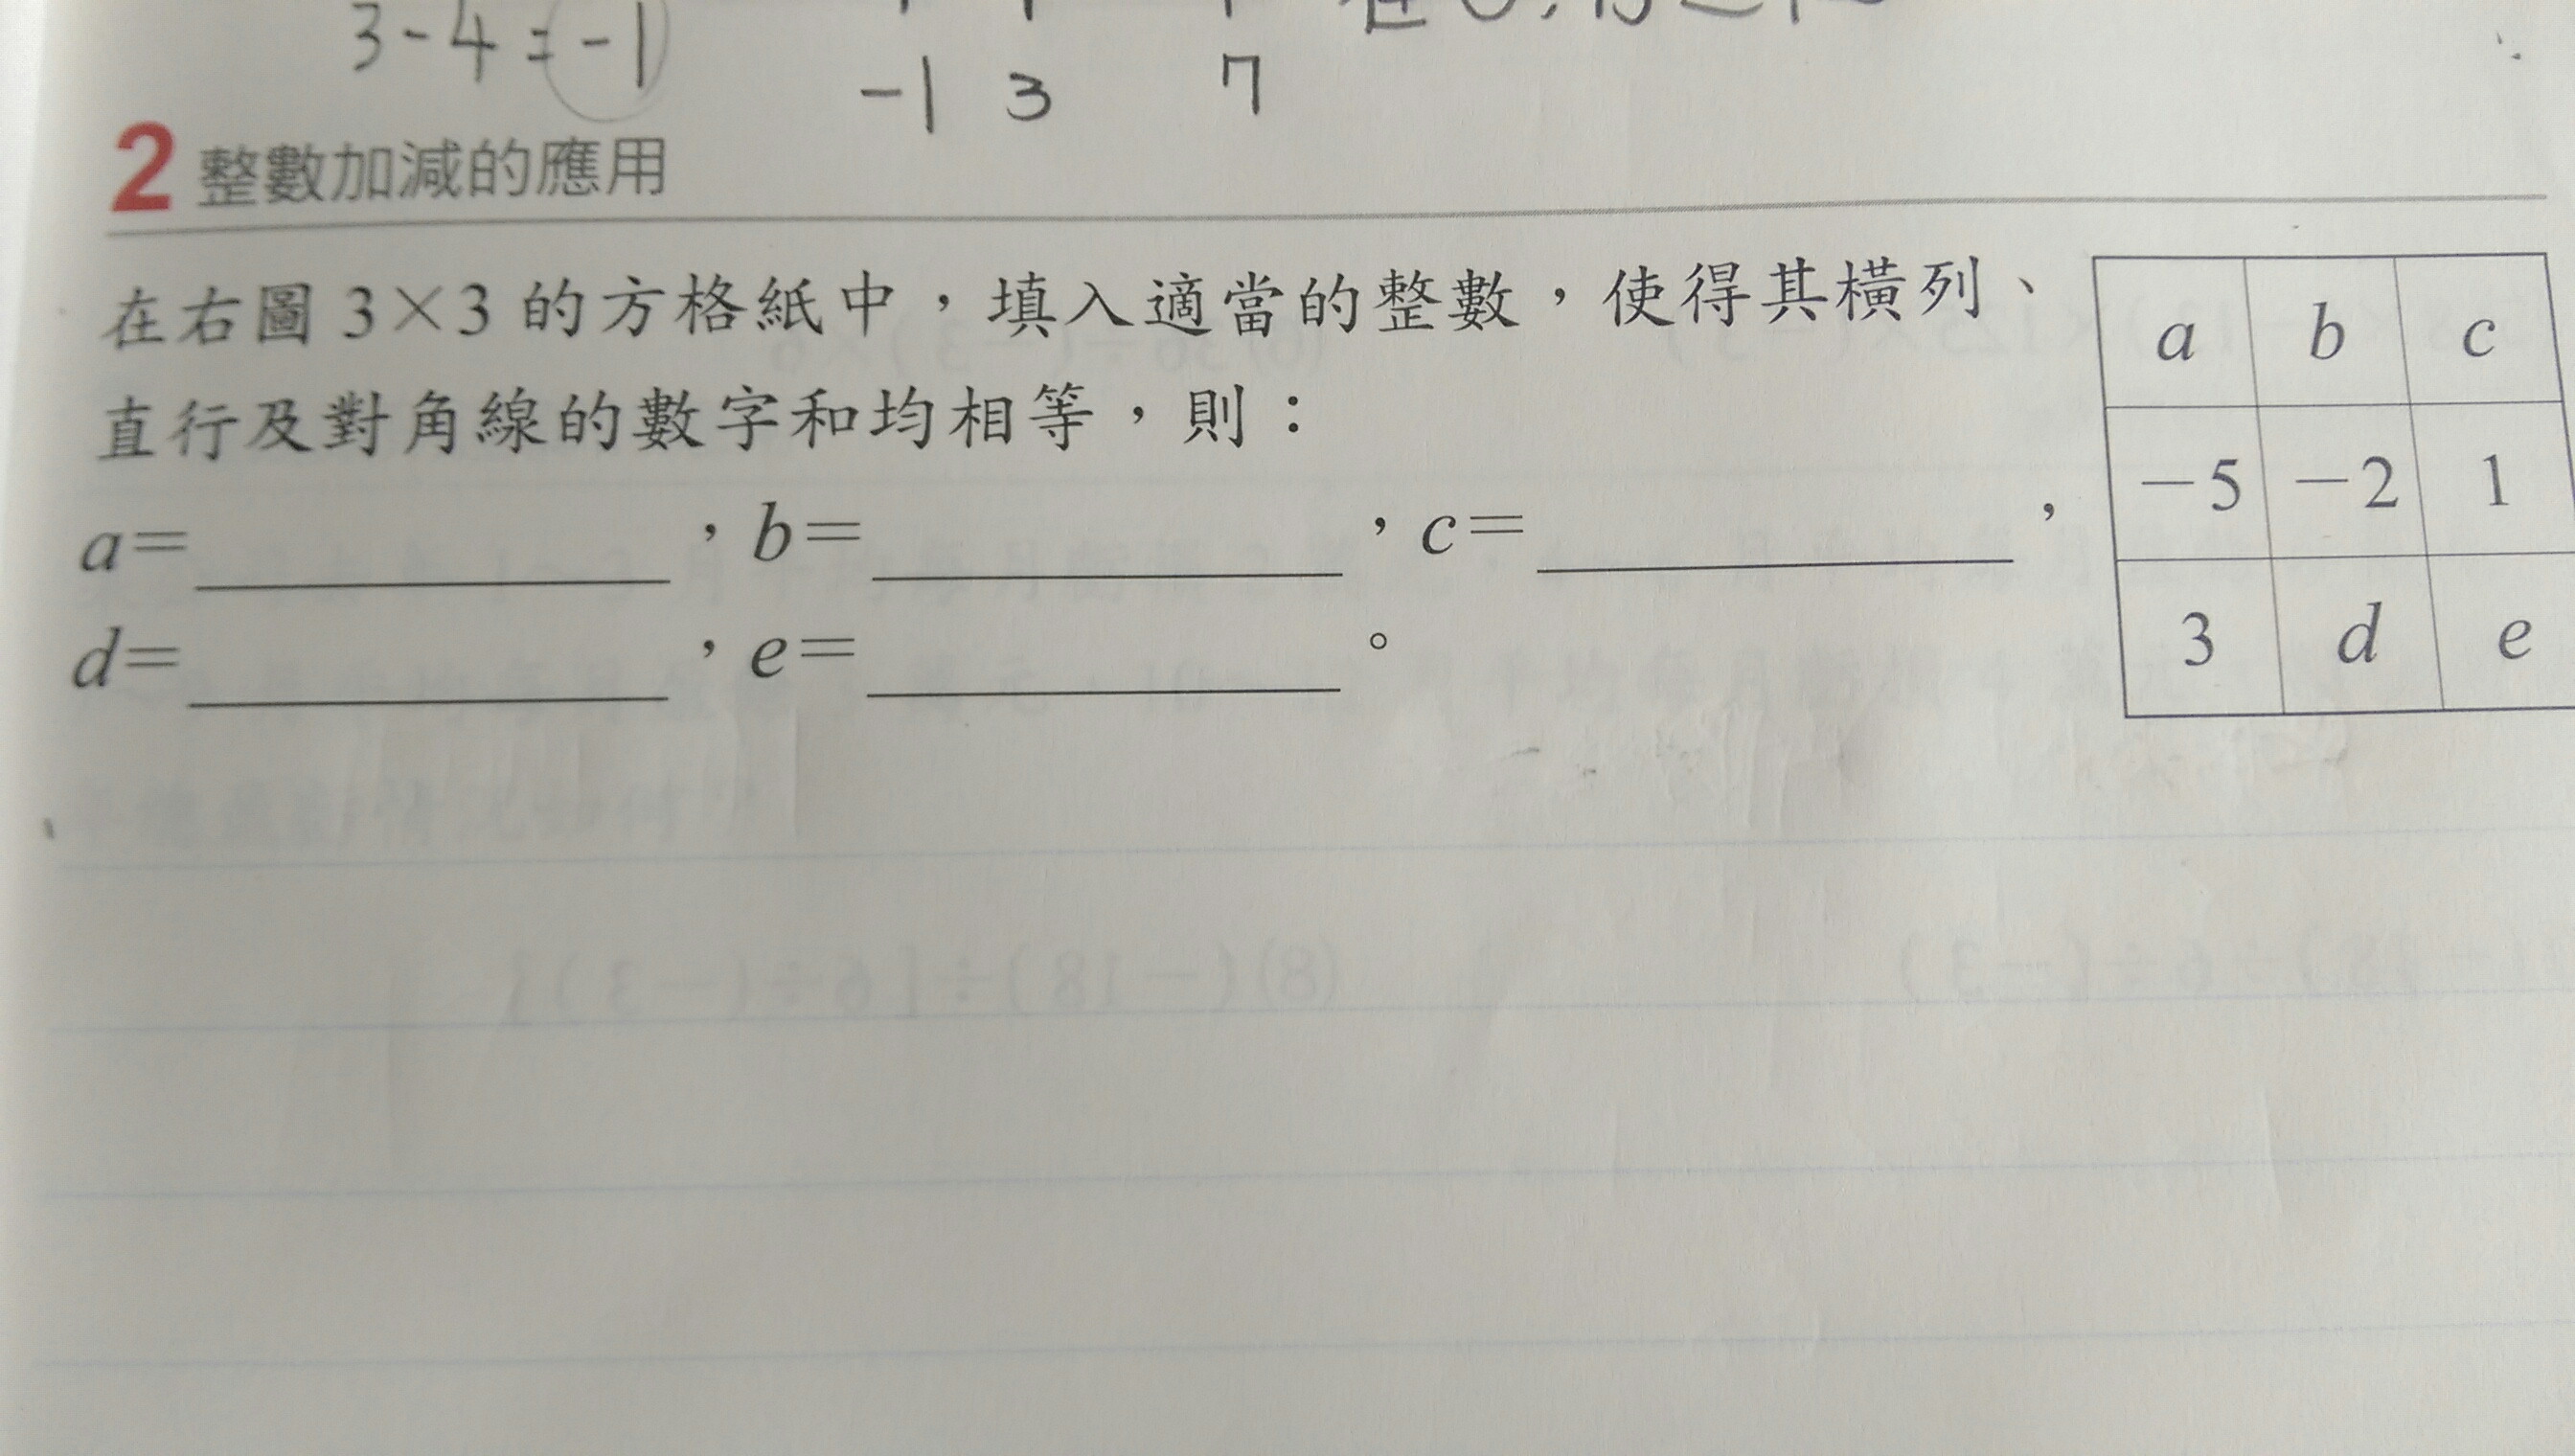 3-4=-1
-1 3 7
2 整數加減的應用
在右圖 3×3 的方格紙中，填入適當的整數，使得其橫列、
直行及對角線的數字和均相等，則：
a=＿＿＿，b=＿＿＿，c=＿＿＿，
d=＿＿＿，e=＿＿＿。
a b c
-5 -2 1
3 d e